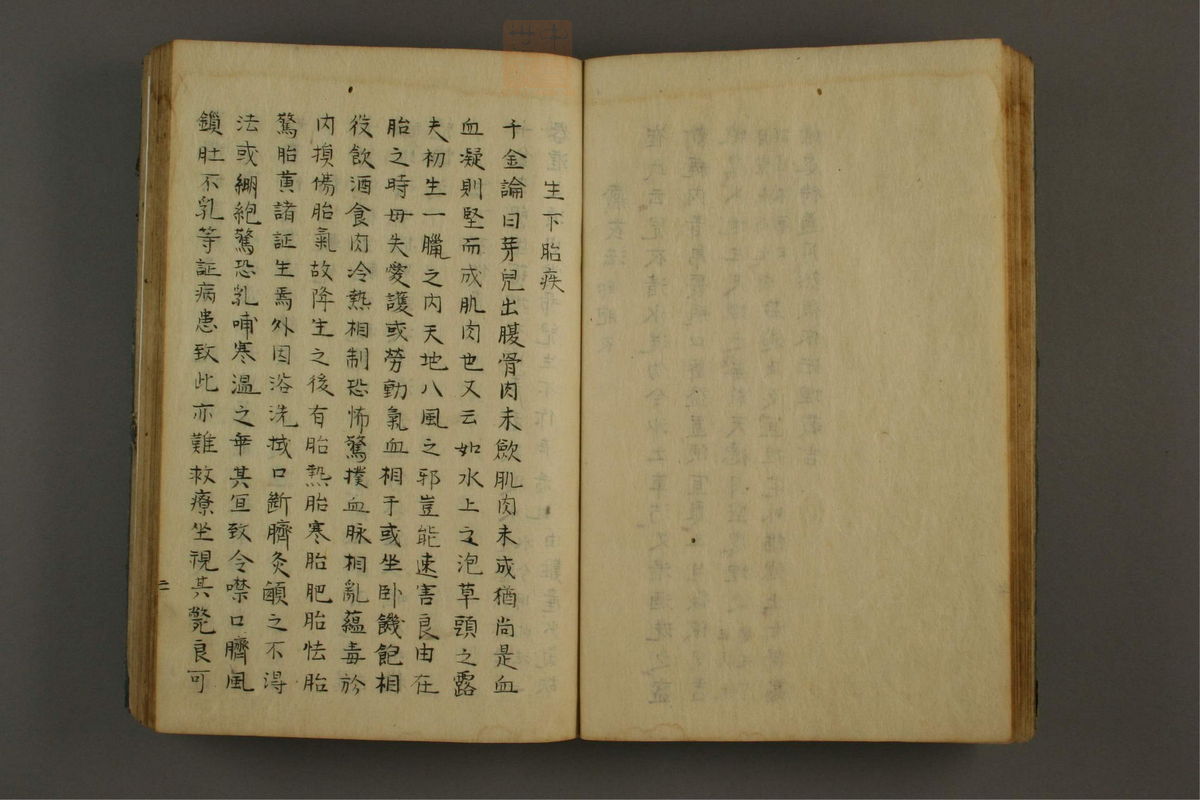 生下胎疾
千金論曰芽兒出腹骨肉未歛肌肉未成猶尚是血
血凝則堅而成肌肉也又云如水上之泡草頭之露
夫初生一臘之内天地八風之邪豈能速害良由在
胎之時毋失愛護或勞動氣血相于或坐卧饑飽相
役飲酒食肉冷熱相制恐怖驚撲血脉相亂蘊毒於
内損傷胎氣故降生之後有胎熱胎寒胎肥胎怯胎
驚胎黄諸証生焉外因浴洗拭口斷臍灸顖之不得
法或綳絶驚恐乳哺寒温之乖其宜致令噤口臍風
鎖肚不乳等証病患致此亦難救療坐視其斃良可
二